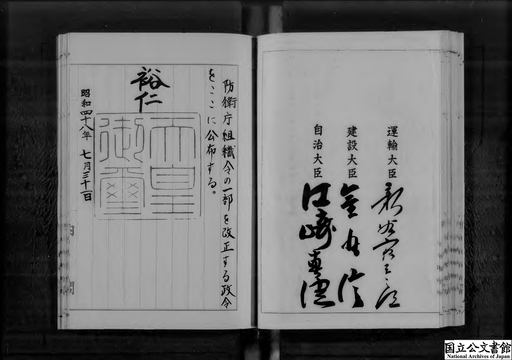 運輸大臣 新谷寅三郎
建設大臣 金丸信
自治大臣 江崎真澄
防衛庁組織令の一部を改正する政令
をここに公布する。
裕仁
天皇
御璽
昭和四十八年 七月三十一日
内閣
国立公文書館
National Archives of Japan